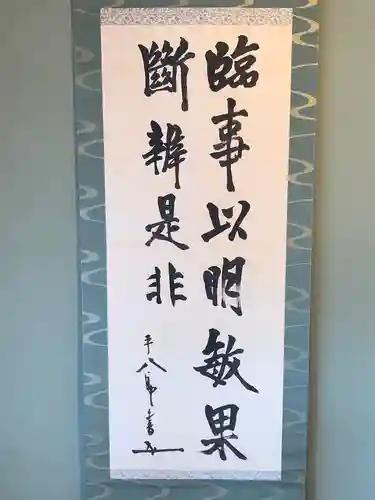 臨事以明敏果
斷辨是非
平八郎書